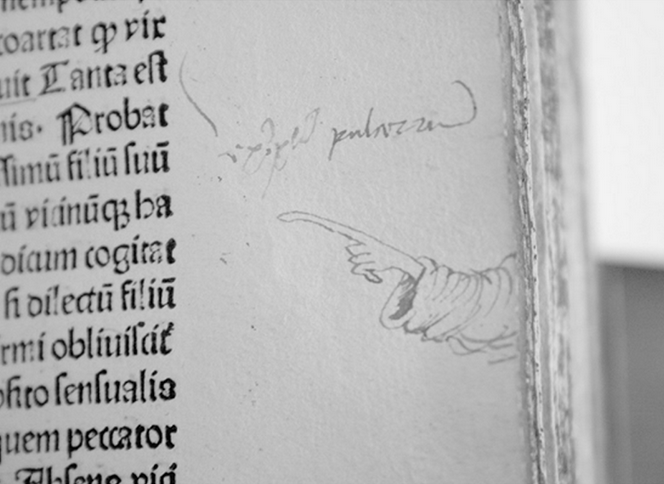 coartat ꝙ vir
uit Tanta eſt
nis. Probat
ſſimū filiū ſuū
ū vicinūqꝫ ha
odicum cogitat
ſi dilectū filiū
rmi obliuiſcit᷑
oſito ſenſualis
quem peccator
pulcrum